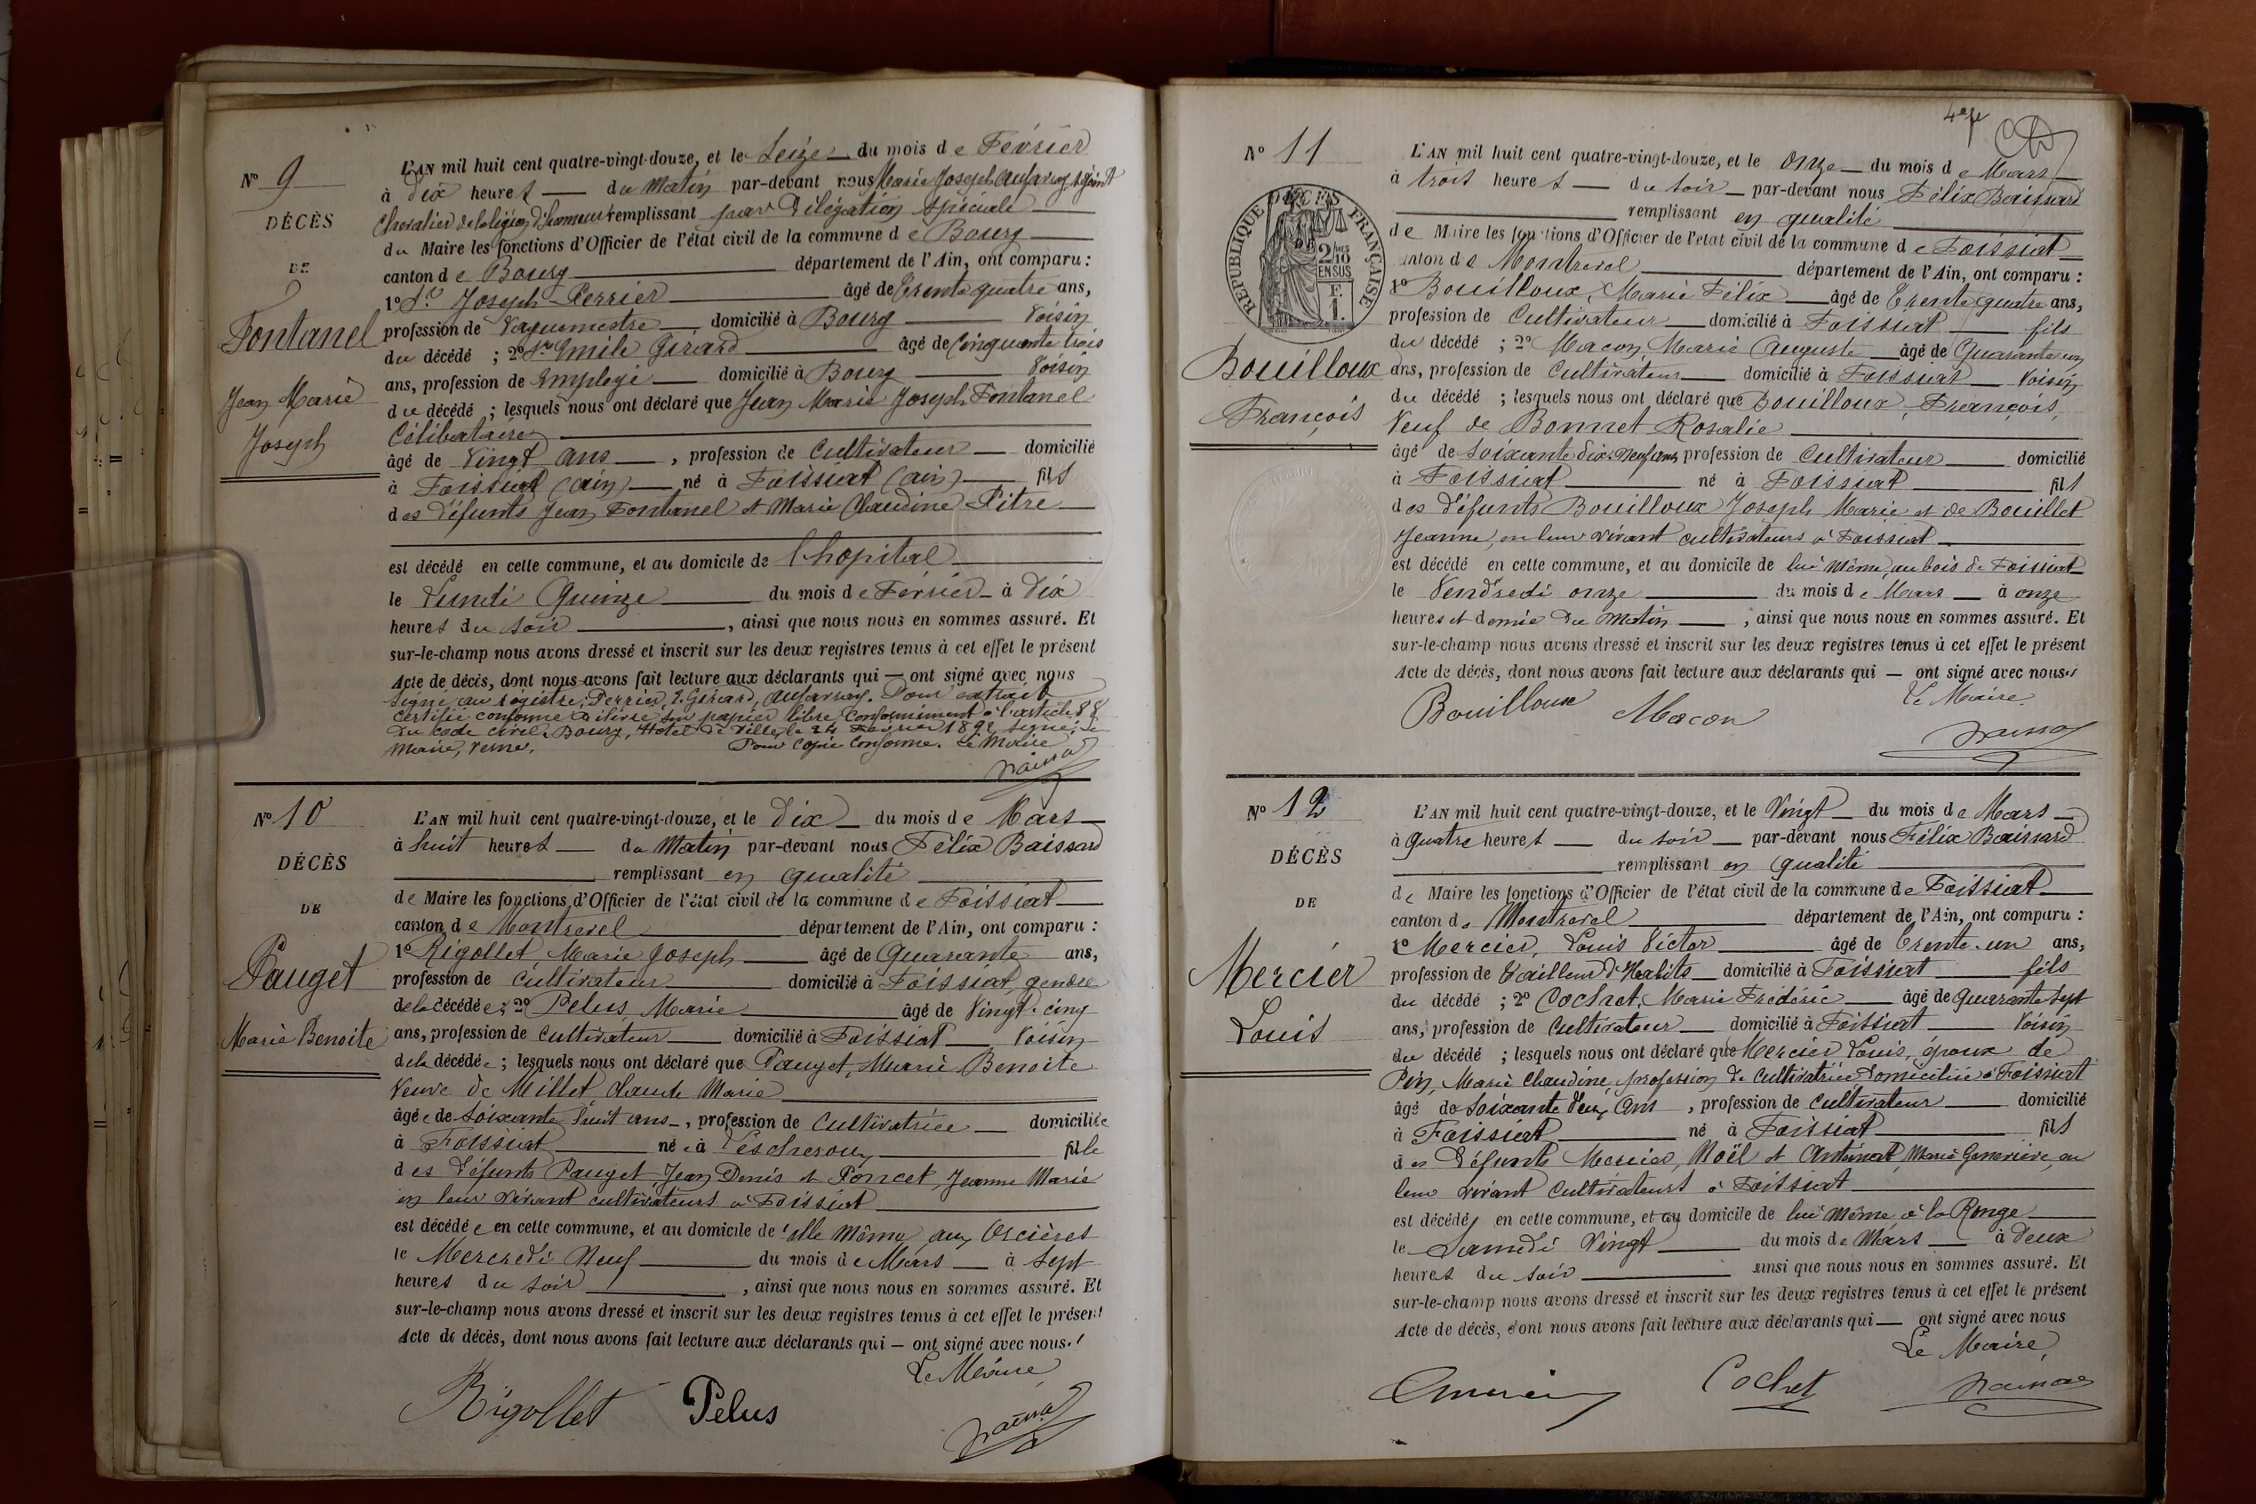 Nº 9
DÉCÈS
DE
Fontanel
Jean Marie
Joseph
L'AN mil huit cent quatre-vingt-douze, et le Seize du mois de Février
à dix heures du Matin par-devant nous Marie Joseph adjoint
Chevalier de la légion d'honneur remplissant par Délégation spéciale
du Maire les fonctions d'Officier de l'état civil de la commune de Bourg
canton de Bourg département de l'Ain, ont comparu :
1º Sr Joseph Perrier âgé de trente quatre ans,
profession de Vaguemestre, domicilié à Bourg Voisin
du décédé ; 2º Sr Emile Girard âgé de Cinquante trois
ans, profession de Employé domicilié à Bourg Voisin
du décédé ; lesquels nous ont déclaré que Jean Marie Joseph Fontanel
Célibataire
âgé de Vingt ans, profession de Cultivateur domicilié
à Foissiat (ain) né à Foissiat (ain) fils
des défunts Jean Fontanel et Marie Claudine Pitre
est décédé en cette commune, et au domicile de l'hopital
le Lundi Quinze du mois de Février à dix
heures du soir, ainsi que nous nous en sommes assuré. Et
sur-le-champ nous avons dressé et inscrit sur les deux registres tenus à cet effet le présent
Acte de décès, dont nous avons fait lecture aux déclarants qui — ont signé avec nous
Signé au registre: Perrier, E. Girard, Pour extrait
certifié conforme Délivré sur papier libre, Conformément à l'article 88
du code civil. Bourg, Hotel de Ville, le 24 Février 1892, signé: le
Maire, Verne. Pour copie conforme. Le Maire
Nº 10
DÉCÈS
DE
Pauget
Marie Benoite
L'AN mil huit cent quatre-vingt-douze, et le dix du mois de Mars
à huit heures du Matin par-devant nous Félix Baissard
remplissant en qualité
de Maire les fonctions d'Officier de l'état civil de la commune de Foissiat
canton de Montrevel département de l'Ain, ont comparu :
1º Rigollet, Marie Joseph âgé de Quarante ans,
profession de cultivateur domicilié à Foissiat, gendre
de la décédée ; 2º Pelus, Marie âgé de Vingt-cinq
ans, profession de cultivateur domicilié à Foissiat Voisin
de la décédée ; lesquels nous ont déclaré que Pauget, Marie Benoite
Veuve de Millet Claude Marie
âgée de Soixante huit ans, profession de Cultivatrice domiciliée
à Foissiat née à Lescheroux fille
des défunts Pauget, Jean Denis et Poncet, Jeanne Marie
en leur vivant cultivateurs à Foissiat
est décédée en cette commune, et au domicile de elle même, aux Orcières
le Mercredi Neuf du mois de Mars à Sept
heures du soir, ainsi que nous nous en sommes assuré. Et
sur-le-champ nous avons dressé et inscrit sur les deux registres tenus à cet effet le présent
Acte de décès, dont nous avons fait lecture aux déclarants qui — ont signé avec nous.
Le Maire
Rigollet Pelus
4e
Nº 11
DÉCÈS
RÉPUBLIQUE FRANÇAISE
2/10 EN SUS
F. 1.
Bouilloux
François
L'AN mil huit cent quatre-vingt-douze, et le onze du mois de Mars
à trois heures du soir par-devant nous Félix Baissard
remplissant en qualité
de Maire les fonctions d'Officier de l'état civil de la commune de Foissiat
canton de Montrevel département de l'Ain, ont comparu :
1º Bouilloux, Marie Félix âgé de trente quatre ans,
profession de Cultivateur domicilié à Foissiat fils
du décédé ; 2º Macon, Marie Auguste âgé de Quarante un
ans, profession de Cultivateur domicilié à Foissiat Voisin
du décédé ; lesquels nous ont déclaré que Bouilloux, François,
Veuf de Bonnet Rosalie
âgé de soixante dix-neuf ans, profession de Cultivateur domicilié
à Foissiat né à Foissiat fils
des défunts Bouilloux Joseph Marie et de Bouillet
Jeanne, en leur vivant cultivateurs à Foissiat
est décédé en cette commune, et au domicile de lui même, au bois de Foissiat
le Vendredi onze du mois de Mars à onze
heures et demie du Matin, ainsi que nous nous en sommes assuré. Et
sur-le-champ nous avons dressé et inscrit sur les deux registres tenus à cet effet le présent
Acte de décès, dont nous avons fait lecture aux déclarants qui — ont signé avec nous
Le Maire
Bouilloux Macon
Nº 12
DÉCÈS
DE
Mercier
Louis
L'AN mil huit cent quatre-vingt-douze, et le Vingt du mois de Mars
à Quatre heures du soir par-devant nous Félix Baissard
remplissant en qualité
de Maire les fonctions d'Officier de l'état civil de la commune de Foissiat
canton de Montrevel département de l'Ain, ont comparu :
1º Mercier, Louis Victor âgé de trente-un ans,
profession de tailleur d'Habits domicilié à Foissiat fils
du décédé ; 2º Cochet, Marie Frédéric âgé de Quarante sept
ans, profession de Cultivateur domicilié à Foissiat Voisin
du décédé ; lesquels nous ont déclaré que Mercier Louis, époux de
Pin, Marie Claudine, profession de Cultivatrice domiciliée à Foissiat
âgé de Soixante deux ans, profession de Cultivateur domicilié
à Foissiat né à Foissiat fils
des défunts Mercier, Noël et Antoinat, Marie Geneviève, en
leur vivant Cultivateurs à Foissiat
est décédé en cette commune, et au domicile de lui même à la Ronge
le Samedi Vingt du mois de Mars à deux
heures du soir ainsi que nous nous en sommes assuré. Et
sur-le-champ nous avons dressé et inscrit sur les deux registres tenus à cet effet le présent
Acte de décès, dont nous avons fait lecture aux déclarants qui — ont signé avec nous
Le Maire,
Cochet